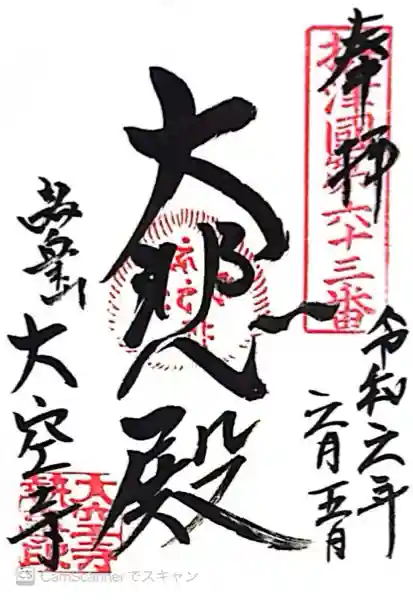 奉拝
津國第六十三番
令和六年
六月五日
大悲殿
大空寺
大空寺
CS CamScannerでスキャン